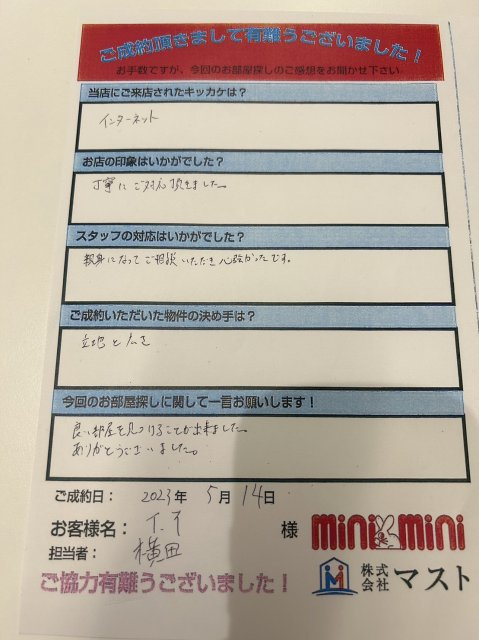 ご成約頂きまして有難うございました！
お手数ですが、今回のお部屋探しのご感想をお聞かせ下さい
当店にご来店されたキッカケは？
インターネット
お店の印象はいかがでした？
丁寧にご対応頂きました。
スタッフの対応はいかがでした？
親身になってご相談いただき心強かったです。
ご成約いただいた物件の決め手は？
立地と広さ
今回のお部屋探しに関して一言お願いします！
良い部屋を見つけることが出来ました。
ありがとうございました。
ご成約日： 2023年 5月 14日
お客様名： T.I 様
担当者： 横田
minimini
ご協力有難うございました！
株式会社マスト